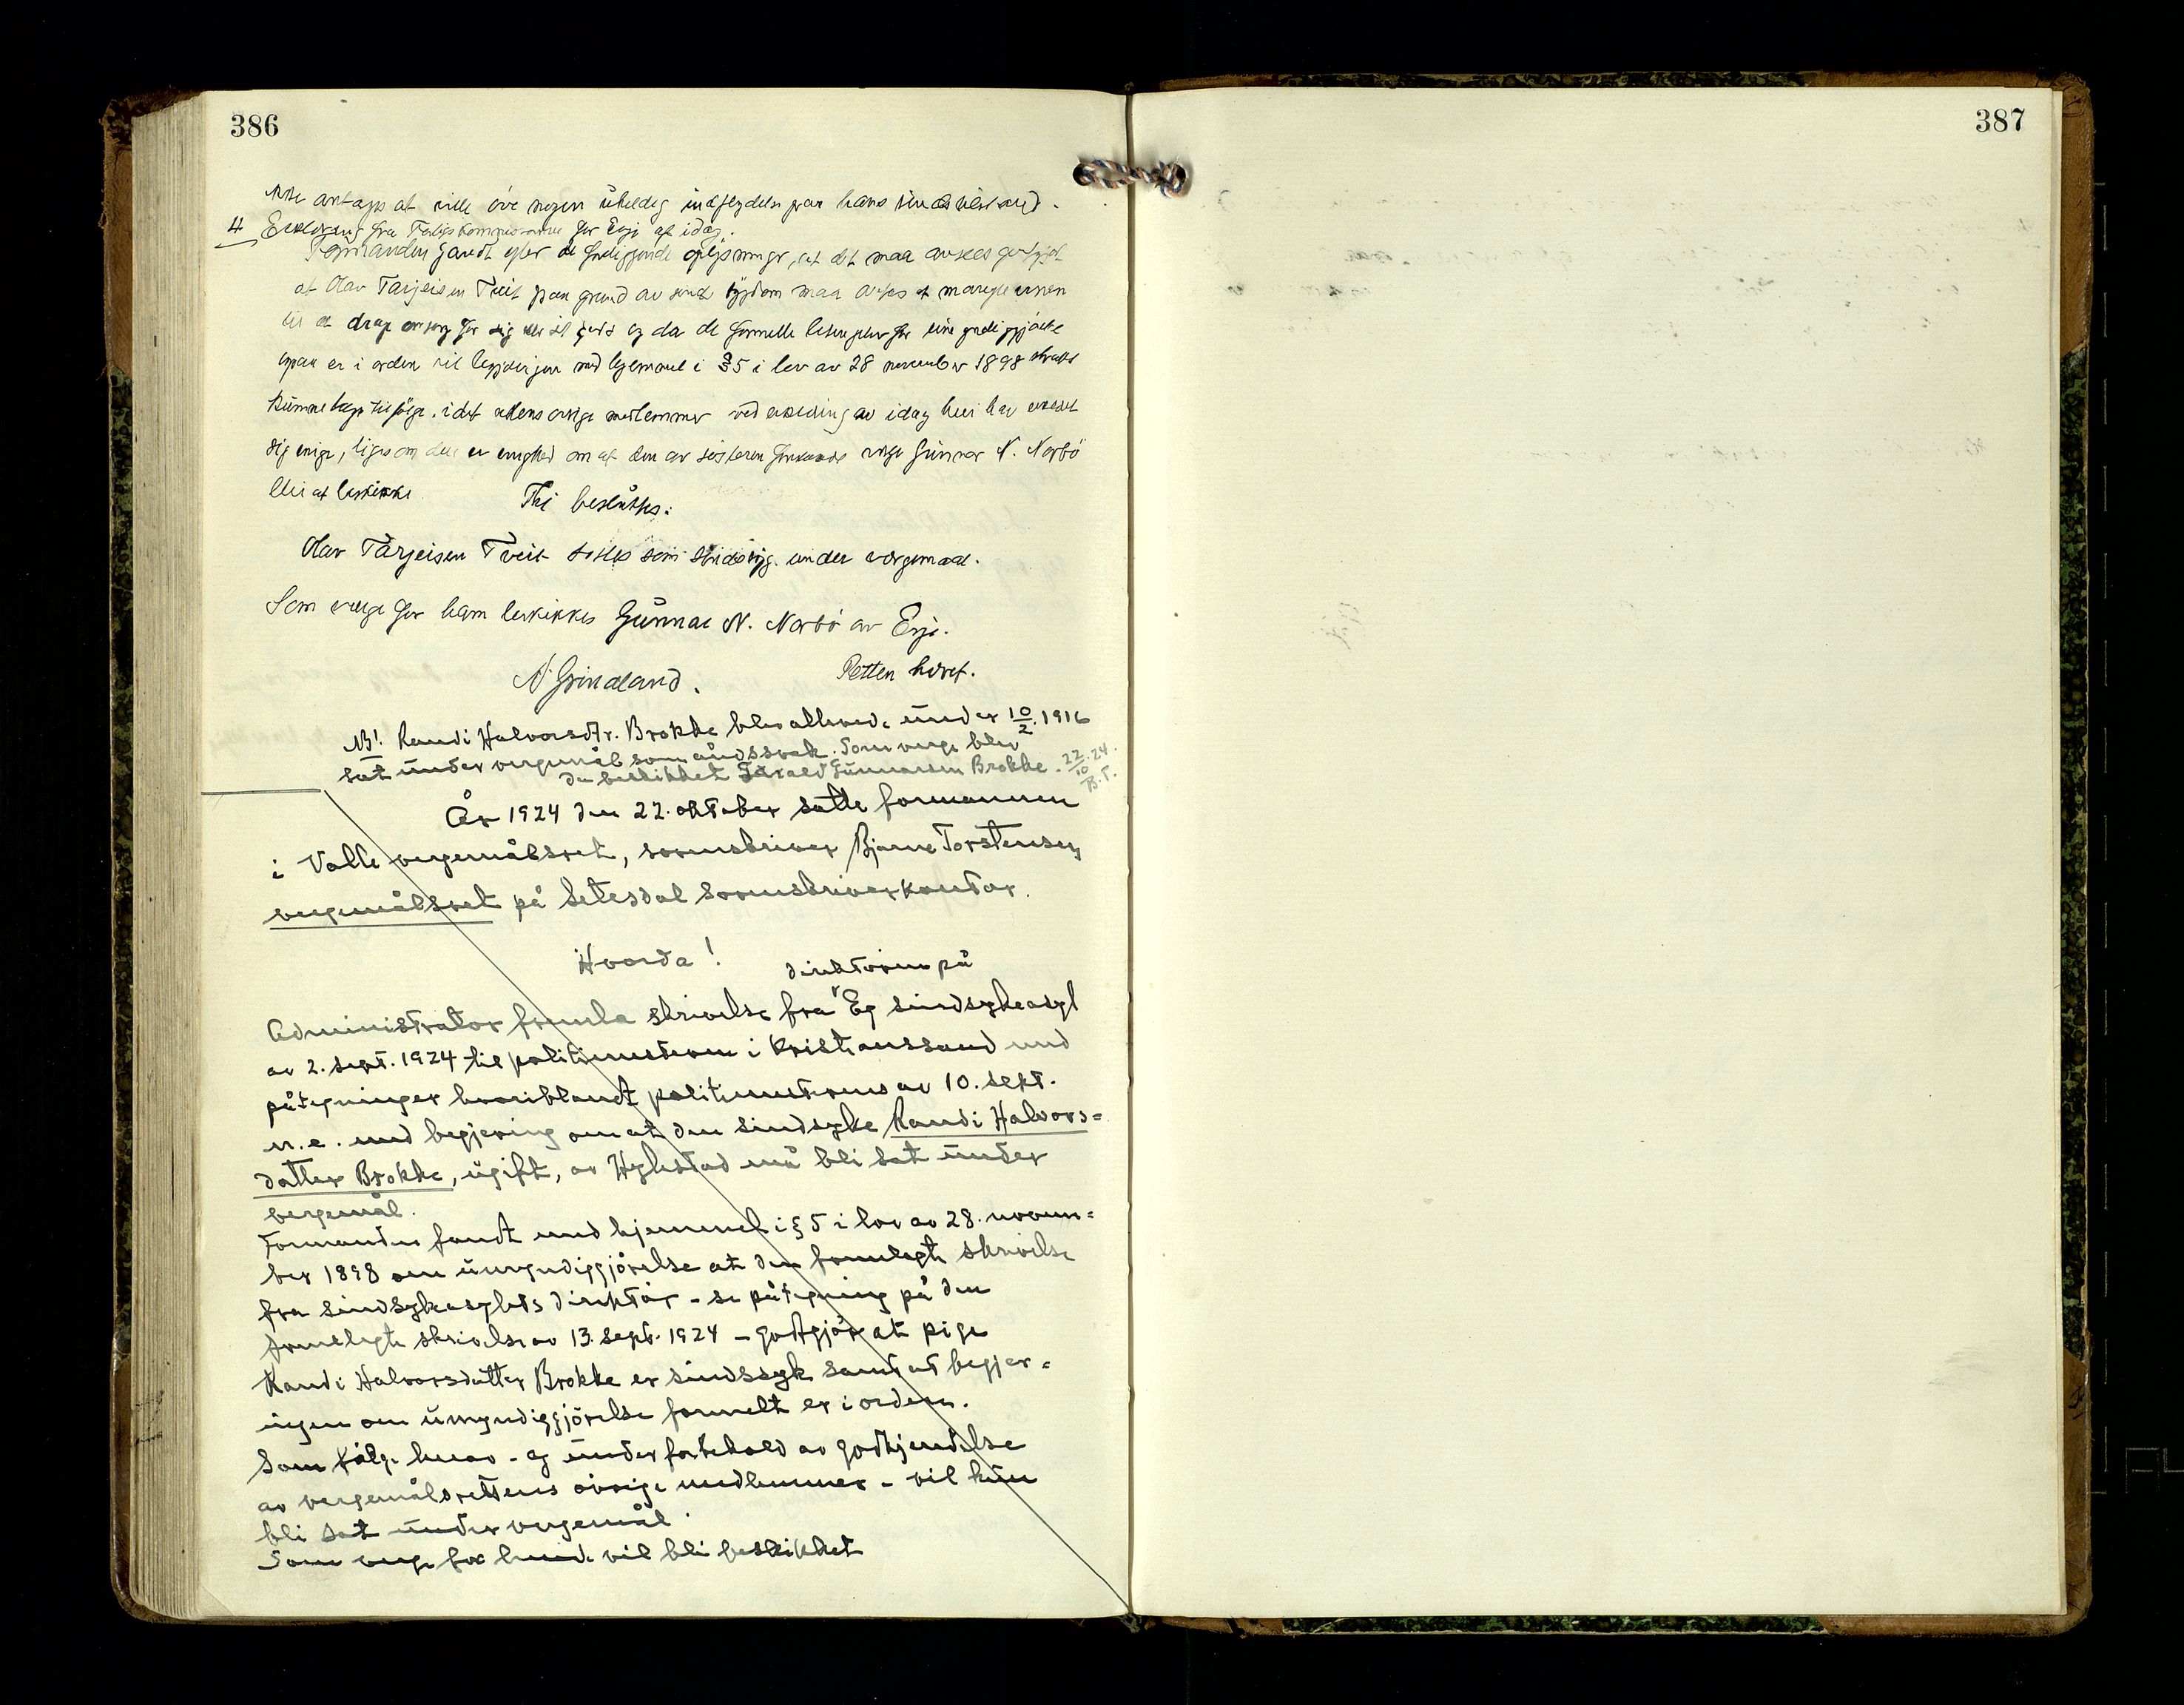 386
387
ikke antages at ville øve nogen uheldig indflydelse paa hans sindstilstand.
4 Erklæring fra Fattigkommissionen for Evje af idag.
Formanden fandt efter de foreliggende oplysninger, at det maa ansees godtgjort
at Olav Tarjeisen Tveit paa grund av sindssygdom maa antas at mangle evnen
til at drage omsorg for sig eller sit gods og da de formelle betingelser for umyndiggjørelse
ogsaa er i orden vil begjæringen med hjemmel i §5 i lov av 28 november 1898 straks
kunne tages tilfølge, idet rettens øvrige medlemmer ved erklæring av idag heri har erklæret
sig enige, ligesom der er enighed om at den av søsteren foreslaaede verge Gunnar N. Norbø
blir at beskikke
Thi besluttes:
Olav Tarjeisen Tveit sættes som sindssyg under vergemaal.
Som verge for ham beskikkes Gunnar N. Norbø av Evje.
Retten hævet.
N. Grindland.
NB! Randi Halvorsdtr. Brokke blev allerede under 10/2 1916
sat under vergemål som åndssvak. Som verge blev
da beskikket Gunnarsen Brokke. 22/10 24. B.T.
År 1924 den 22. oktober satte formannen
i Valle vergemålsret, sorenskriver Bjarne Torstensen
vergemålsret på Setesdal sorenskriverkontor.
Hvorda!
direktøren på
Administrator fremla skrivelse fra Eg sindsykeasyl
av 2. sept. 1924 til politimesteren i Kristianssand med
påtegninger hvoriblandt politimesterens av 10. sept.
n.e. med begjering om at den sindsyke Randi Halvors=
datter Brokke, ugift, av Hylestad må bli sat under
vergemål.
Formanden fandt med hjemmel i § 5 i lov av 28. novem=
ber 1898 om umyndiggjørelse at den fremlagte skrivelse
fra sindsykeasylets direktør - se påtegning på den
fremlagte skrivelse av 13. sept. 1924 - godtgjør at pige
Randi Halvorsdatter Brokke er sindssyk samt at begjer=
ingen om umyndiggjørelse formelt er i orden.
Som følge herav - og under forbehold av godkjendelse
av vergemålsrettens øvrige medlemmer - vil hun
bli sat under vergemål.
Som verge for hende vil bli beskikket